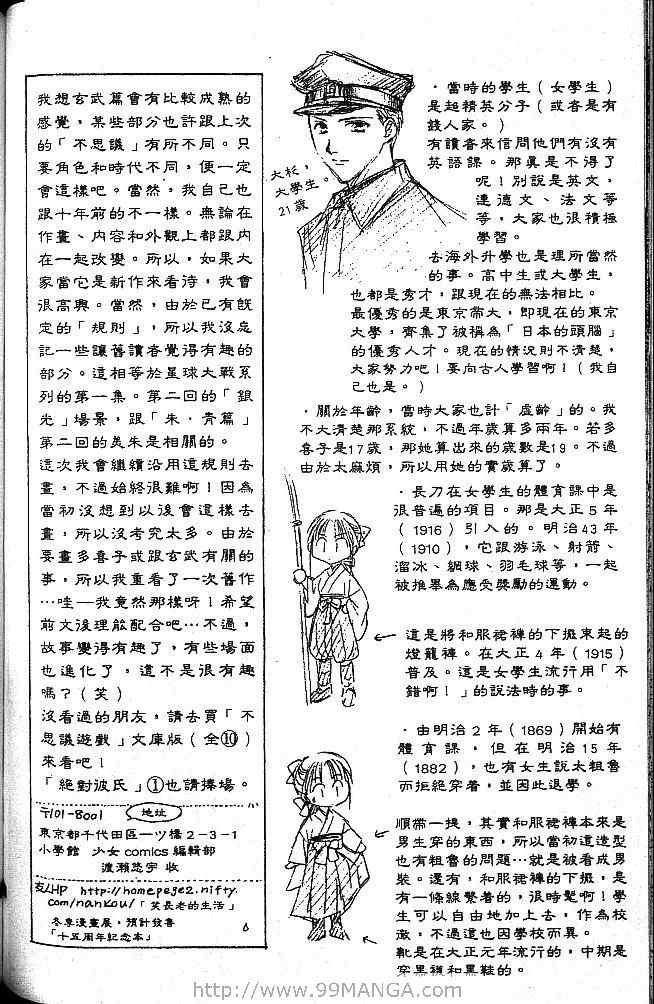 我想玄武篇會有比較成熟的
感覺，某些部分也許跟上次
的「不思議」有所不同。只
要角色和時代不同，便一定
會這樣吧。當然，我自己也
跟十年前的不一樣。無論在
作畫、內容和外觀上都跟內
在一起改變。所以，如果大
家當它是新作來看待，我會
很高興。當然，由於已有既
定的「規則」，所以我沒忘
記一些讓舊讀者覺得有趣的
部分。這相等於星球大戰系
列的第一集。第二回的「銀
光」場景，跟「朱‧青篇」
第二回的美朱是相關的。
這次我會繼續沿用這規則去
畫，不過始終很難啊！因為
當初沒想到以後會這樣去
畫，所以沒考究太多。由於
要畫多喜子或跟玄武有關的
事，所以我重看了一次舊作
…哇—我竟然那樣呀！希望
前文後理能配合吧…不過，
故事變得有趣了，有些場面
也進化了，這不是很有趣
嗎？(笑)
沒看過的朋友，請去買「不
思議遊戲」文庫版(全⑩)
來看吧！
「絕對彼氏」①也請捧場。
〒101-8001 地址
東京都千代田區一ツ橋2-3-1
小學館 少女comics編輯部
渡瀨悠宇 收
友/HP http://homepege2.nifty.
com/nankou/「笑長老的生活」
冬季漫畫展，預計發售
「十五周年紀念本」
‧當時的學生(女學生)
是超精英分子(或者是有
錢人家。)
有讀者來信問他們有沒有
英語課。那真是不得了
呢！別說是英文，
連德文、法文等
等，大家也很積極
學習。
去海外升學也是理所當然
的事。高中生或大學生，
也都是秀才，跟現在的無法相比。
最優秀的是東京帝大，即現在的東京
大學，齊集了被稱為「日本的頭腦」
的優秀人才。現在的情況則不清楚，
大家努力吧！要向古人學習啊！(我自
己也是。)
大杉，
大學生。
21歲
‧關於年齡，當時大家也計「虛齡」的。我
不大清楚那系統，不過年歲算多兩年。若多
喜子是17歲，那她算出來的歲數是19。不過
由於太麻煩，所以用她的實歲算了。
‧長刀在女學生的體育課中是
很普遍的項目。那是大正5年
(1916)引入的。明治43年
(1910)，它跟游泳、射箭、
溜冰、網球、羽毛球等，一起
被推舉為應受獎勵的運動。
這是將和服裙褲的下擺束起的
燈籠褲。在大正4年(1915)
普及。這是女學生流行用「不
錯啊！」的說法時的事。
‧由明治2年(1869)開始有
體育課，但在明治15年
(1882)，也有女生說太粗魯
而拒絕穿着，並因此退學。
順帶一提，其實和服裙褲本來是
男生穿的東西，所以當初這造型
也有粗魯的問題…就是被看成男
裝。還有，和服裙褲的下擺，是
有一條線繫着的，很時髦啊！學
生可以自由地加上去，作為校
徽，不過這也因學校而異。
靴是在大正元年流行的，中期是
穿黑襪和黑鞋的。
http://www.99MANGA.com